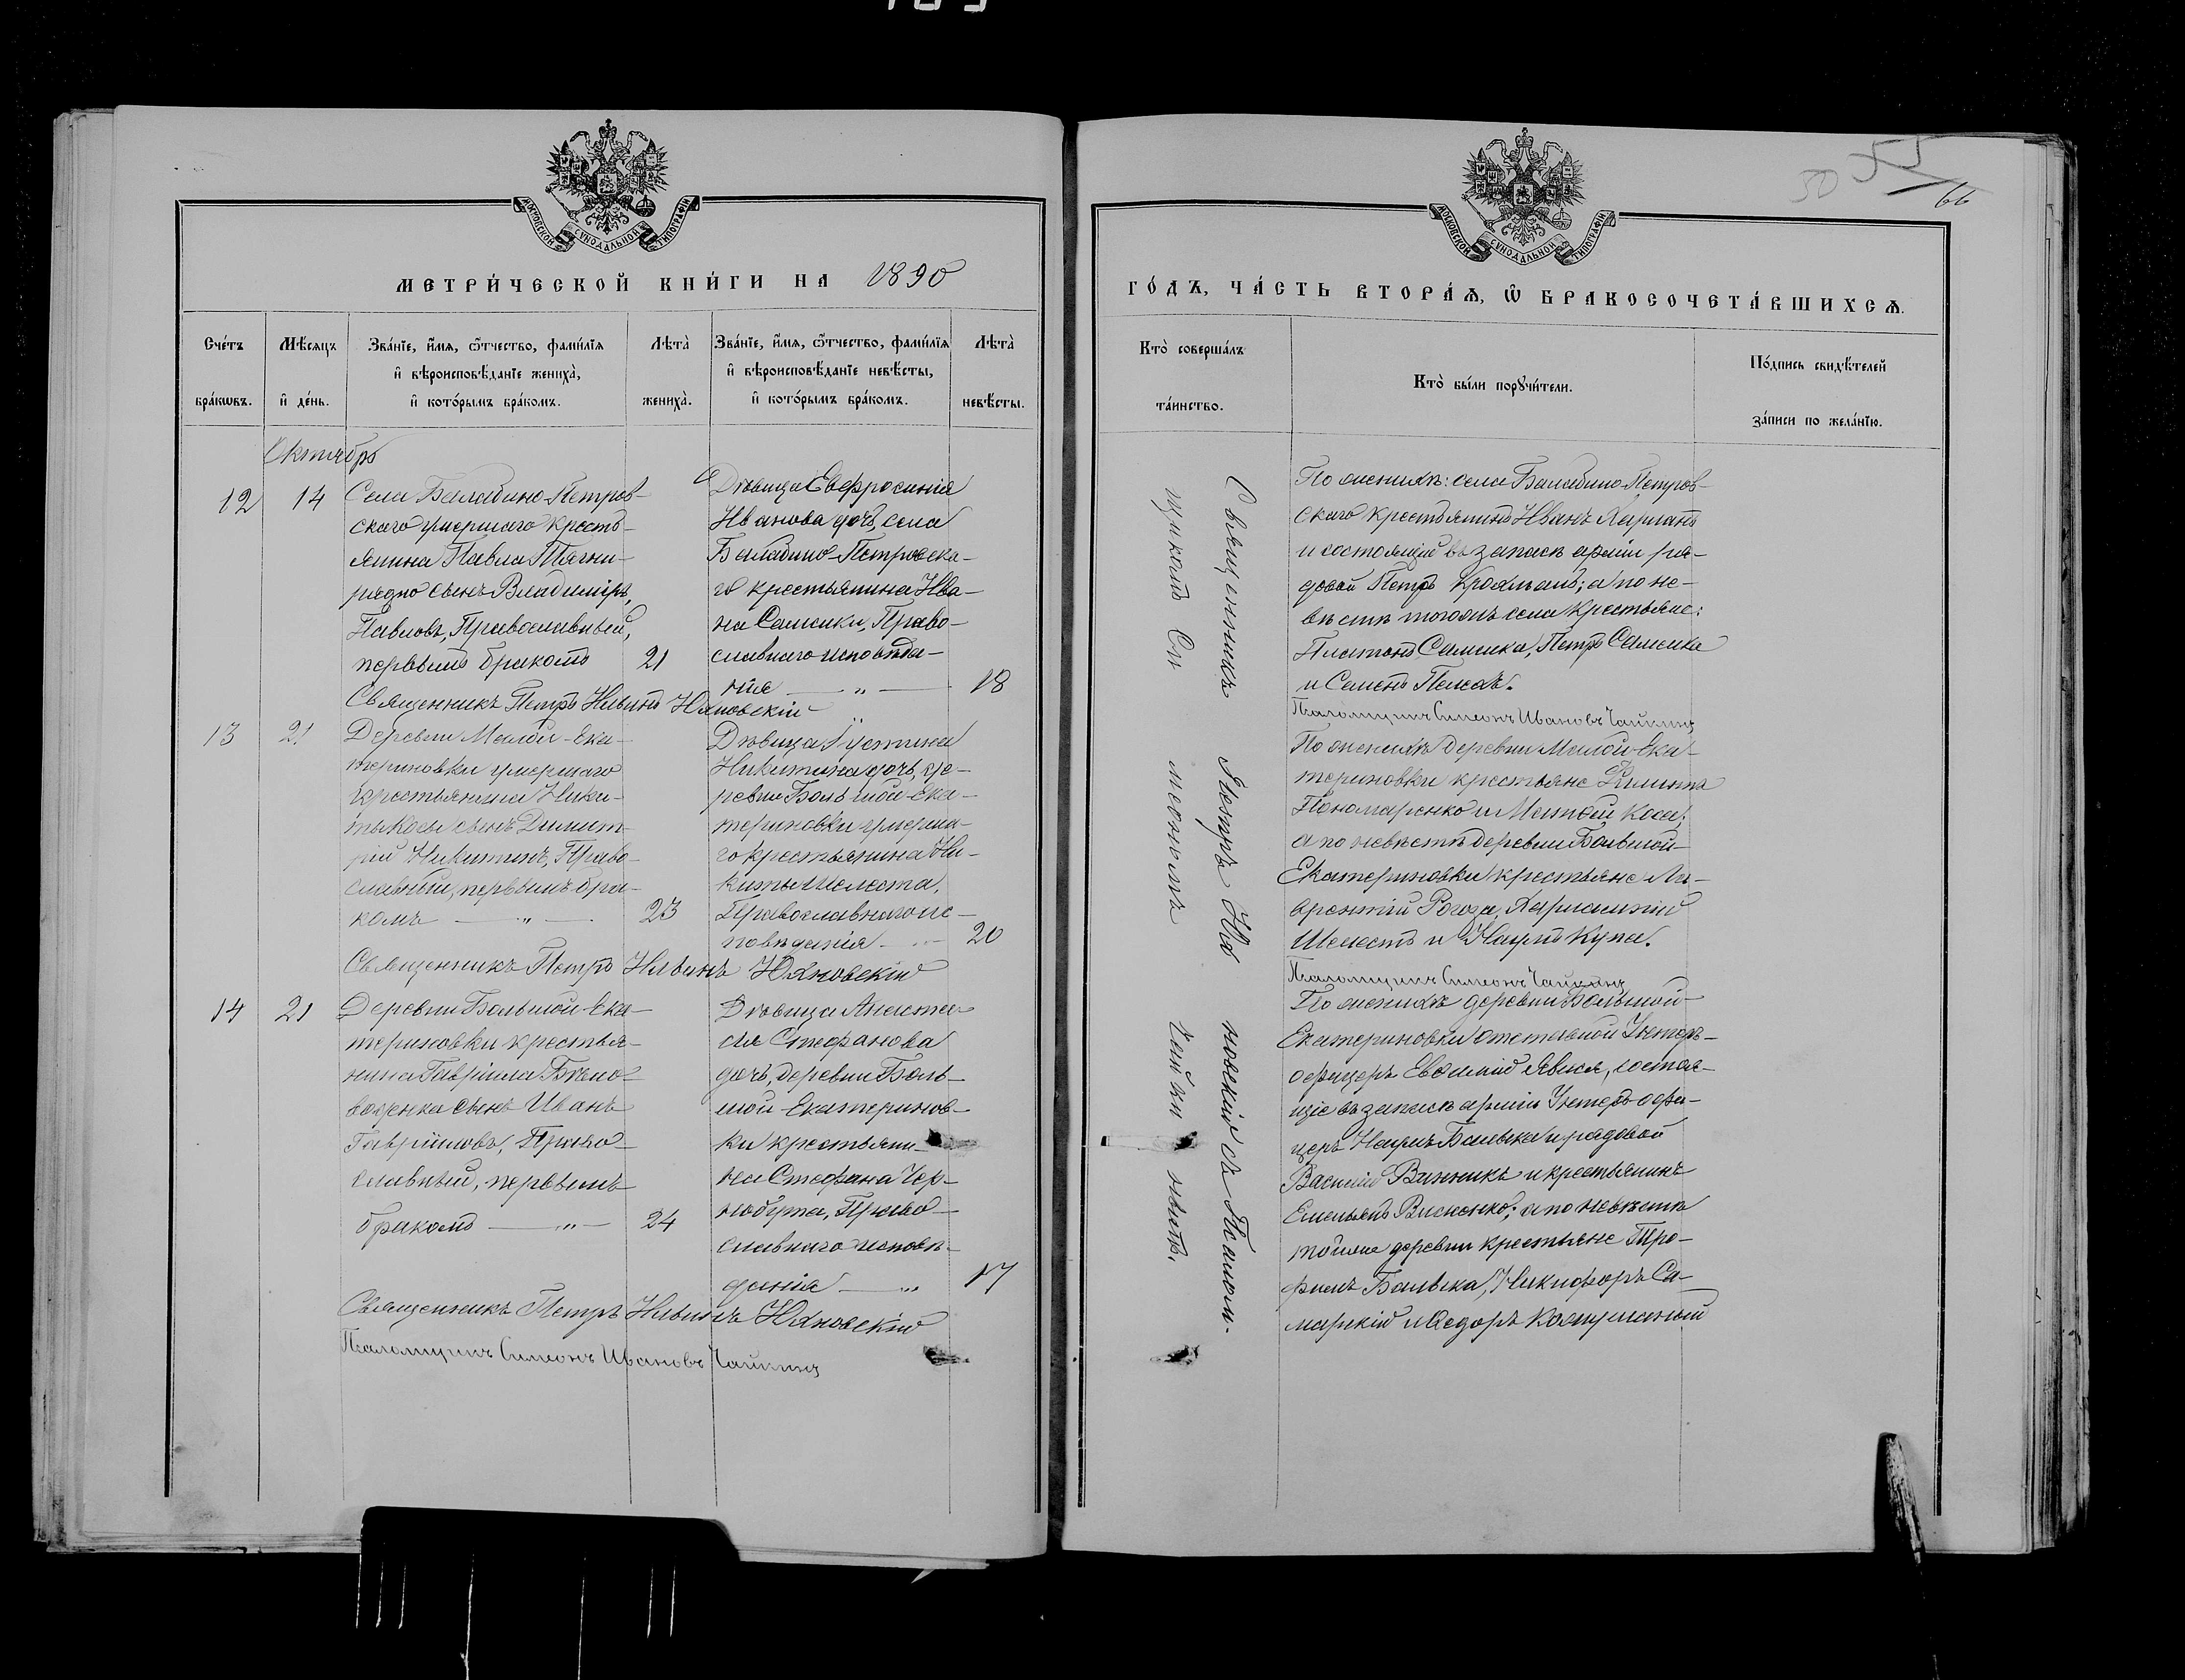 МОСКОВСКОЙ СѴНОДАЛЬНОЙ ТИПОГРАФІИ
МЕТРИ́ЧЕСКОЙ КНИ́ГИ НА 1890
Сче́тъ бра́кωвъ.
Мѣ́сяцъ и҆ де́нь.
Зва́нїе, и҆́мя, ѻ҆́тчество, фами́лїя
и҆ вѣроисповѣ́данїе жениха̀,
и҆ кото́рымъ бра́комъ.
Лѣта̀ жениха̀.
Зва́нїе, и҆́мя, ѻ҆́тчество, фами́лїя
и҆ вѣроисповѣ́данїе невѣ́сты,
и҆ кото́рымъ бра́комъ.
Лѣта̀ невѣ́сты.
Октябрь
12
14
Села Балабино-Петров-
скаго умершаго кресть-
янина Павла Тягни-
рядно сынъ Владиміръ
Павловъ, Православный,
первымъ бракомъ
21
Дѣвица Евфросинія
Иванова дочь, села
Балабино-Петровска-
го крестьянина Ива-
на Самсики, Право-
славнаго исповѣда-
нія — „ —
18
Священникъ Петръ Яновскій
13
21
Деревни Малой-Ека-
териновки умершаго
крестьянина Ники-
ты Косы сынъ Димит-
рій Никитинъ, Право-
славный, первымъ бра-
комъ — „ —
23
Дѣвица Густина
Никитина дочь, де-
ревни Большой-Ека-
териновки умерша-
го крестьянина Ни-
киты Шелеста,
Православнаго ис-
повѣданія — „ —
20
Священникъ Петръ Яновскій
14
21
Деревни Большой-Ека-
териновки крестья-
нина Гавріила Бѣло-
воденка сынъ Иванъ
Гавріиловъ, Право-
славный, первымъ
бракомъ — „ —
24
Дѣвица Анаста-
сія Стефанова
дочь, деревни Боль-
шой-Екатеринов-
ки крестьяни-
на Стефана Чер-
нобука, Право-
славнаго исповѣ-
данія — „
17
Священникъ Петръ Яновскій
Псаломщикъ Симеонъ Ивановъ Чайкинъ
50
55
66
МОСКОВСКОЙ СѴНОДАЛЬНОЙ ТИПОГРАФІИ
ГО́ДЪ, ЧА́СТЬ ВТОРА́Ѧ, Ѽ БРАКОСОЧЕТА́ВШИХСѦ.
Кто̀ соверша́лъ
та́инство.
Кто̀ бы́ли порꙋчи́тели.
По́дпись свидѣ́телей
за́писи по жела́нїю.
Священникъ Петръ Яновскій съ Псалом-
щикомъ Симеономъ Чайкинымъ.
По женихѣ: села Балабино-Петров-
скаго крестьянинъ Иванъ Харланъ
и состоящій въ запасѣ арміи ря-
довой Петръ Крохмаль; а по не-
вѣстѣ тогожъ села крестьяне:
Платонъ Самсика, Петръ Самсика
и Семенъ Пенсахъ.
Псаломщикъ Симеонъ Ивановъ Чайкинъ
По женихѣ деревни Малой-Ека-
териновки крестьяне Филиппъ
Пономаренко и Матвій Коса;
а по невѣстѣ деревни Большой-
Екатериновки крестьяне Ла-
врентій Рогоза, Харлампій
Шелестъ и Наумъ Купа.
Псаломщикъ Симеонъ Чайкинъ
По женихѣ деревни Большой-
Екатериновки отставной Унтеръ-
офицеръ Евфимій Явися, состоя-
щіе въ запасѣ арміи Унтеръ-офи-
церъ Наумъ Балыка и рядовой
Василій Винникъ и крестьянинъ
Емельянъ Висненко; а по невѣстѣ
тойже деревни крестьяне Тро-
фимъ Балыка, Никифоръ Са-
марскій и Ѳедоръ Колтуманый